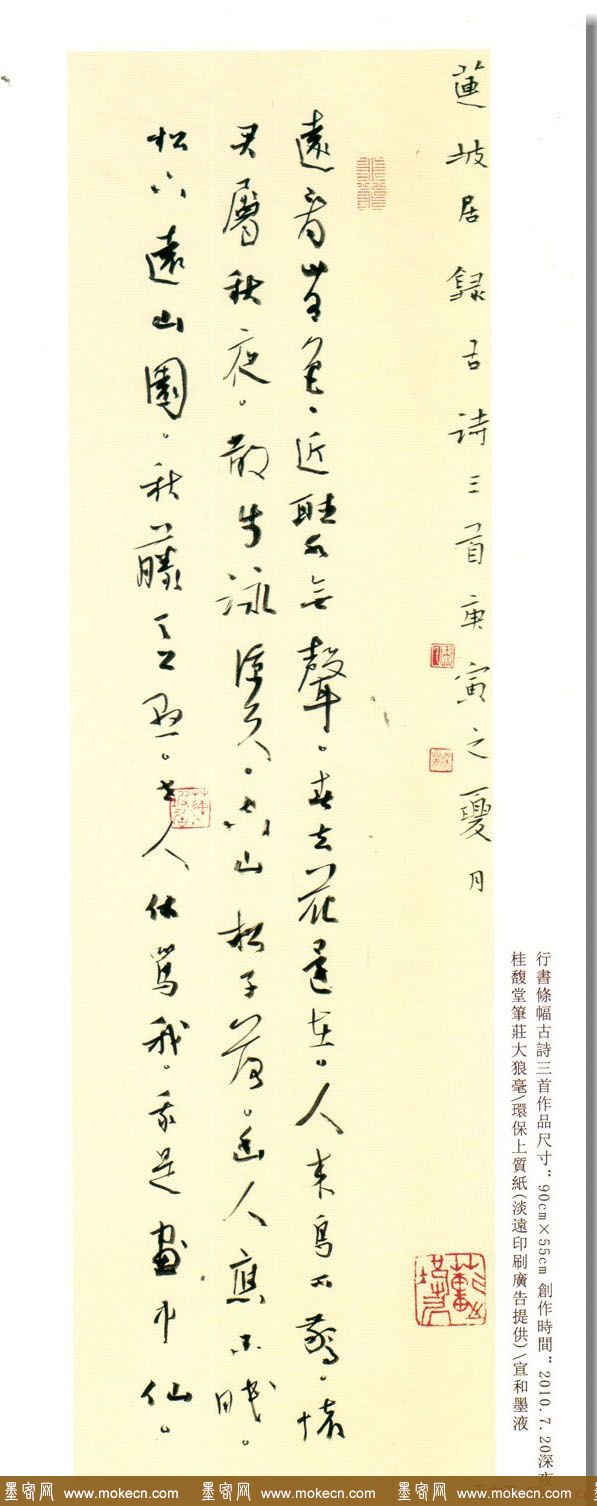 蓮坡居録古詩三首庚寅之夏月
遠看山有色、近聽水無聲。春去花還在。人來鳥不驚。懷
君屬秋夜。散步詠涼天。空山松子落。幽人應未眠。
松下遠山園。秋藤。老人休罵我。我是畫中仙。
行書條幅古詩三首作品尺寸：90cm×55cm 創作時間：2010.7.20深夜
桂馥堂筆莊大狼毫\環保上質紙(淡遠印刷廣告提供)\宣和墨液
墨客网 www.mokecn.com 墨客网 www.mokecn.com 墨客网 www.mokecn.com